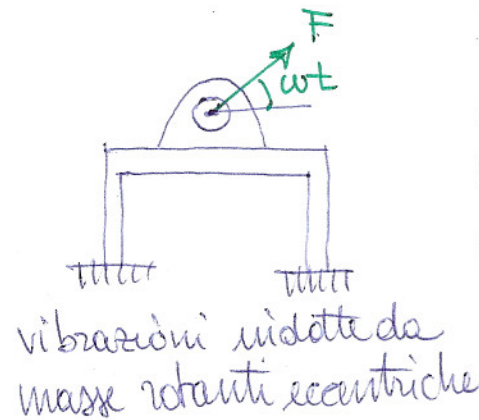 F
ωt
vibrazioni indotte da
masse rotanti eccentriche